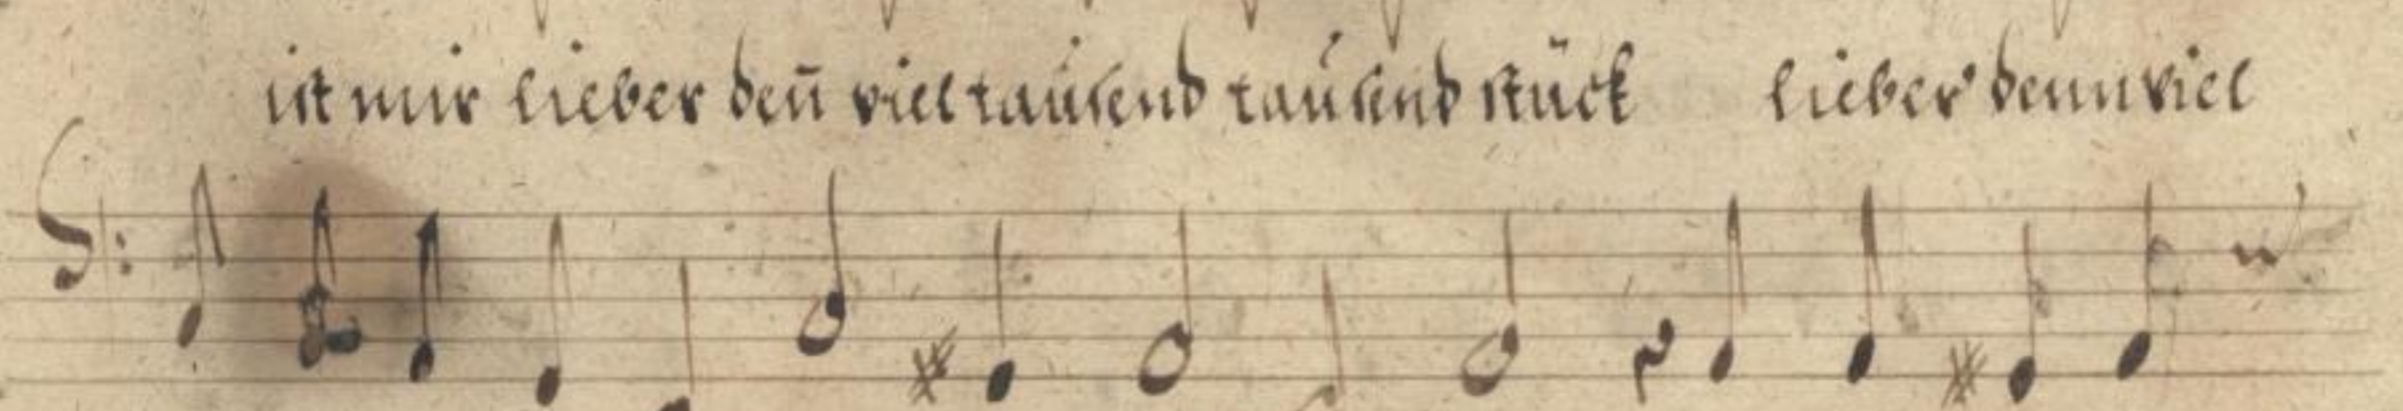 ist mir lieber den̄ viel tausend tausend stück lieber denn viel